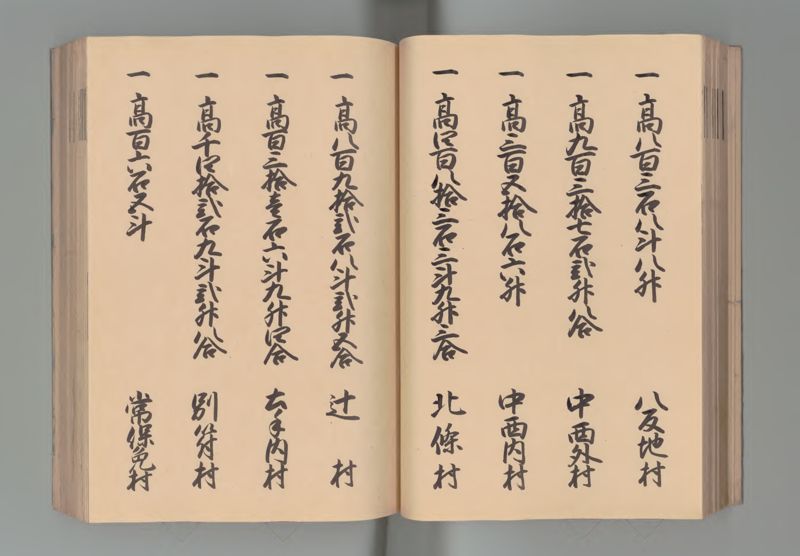 一 高八百三石八斗八升 八反地村
一 高九百三拾七石弐升八合 中西外村
一 高三百五拾八石六升 中西内村
一 高四百八拾三石三斗九升三合 北條村
一 高八百九拾弐石八斗弐升五合 辻村
一 高百三拾壱石六斗九升四合 内村
一 高千四拾弐石九斗弐升八合 別府村
一 高百六石五斗 常保免村